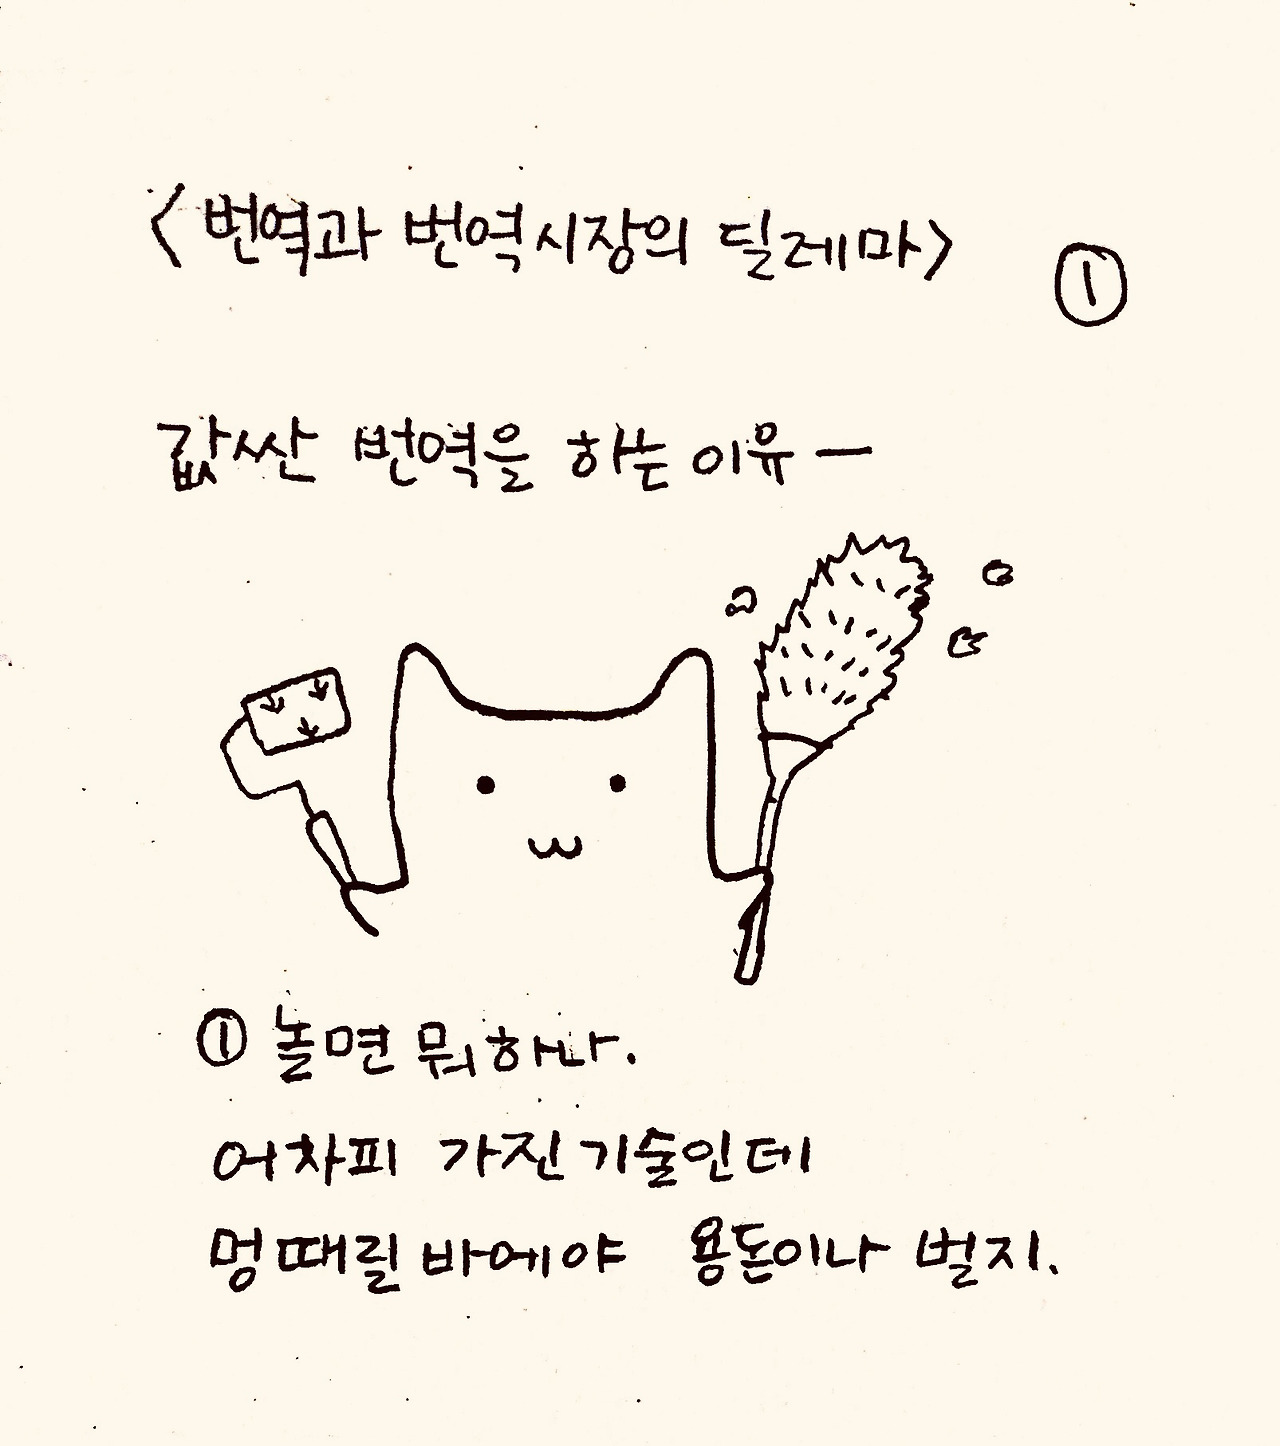 <번역과 번역시장의 딜레마>
①
값싼 번역을 하는 이유 —
① 놀면 뭐하나.
어차피 가진 기술인데
멍때릴 바에야 용돈이나 벌지.